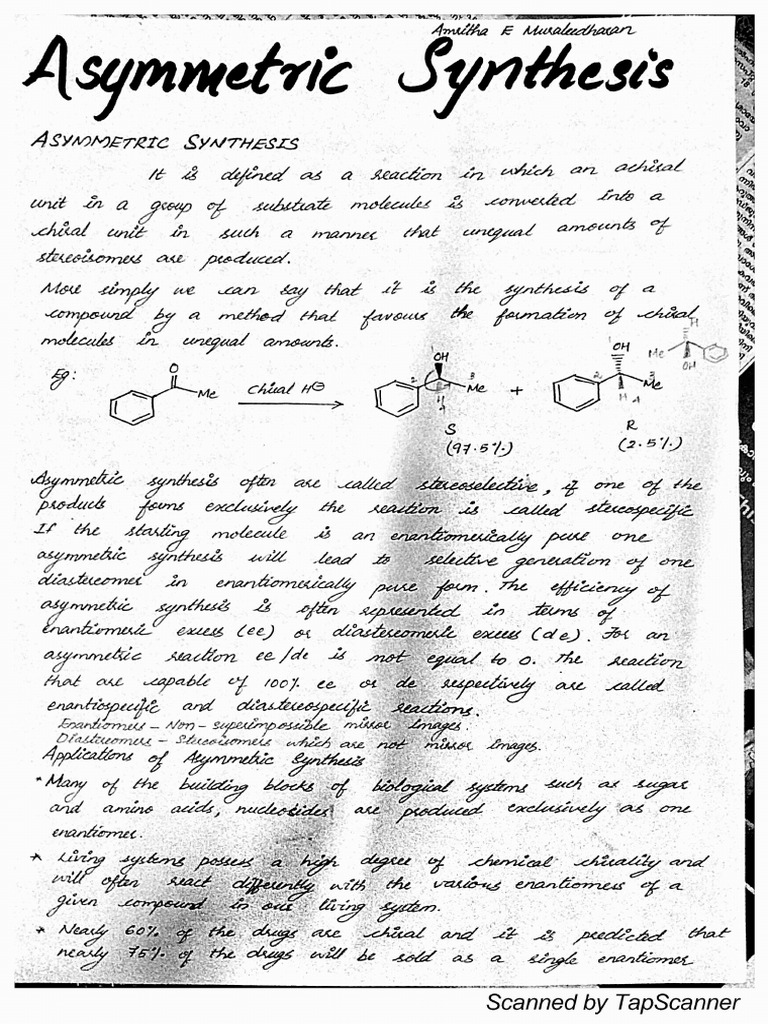 Amritha E Muraleedharan
Asymmetric Synthesis
ASYMMETRIC SYNTHESIS
It is defined as a reaction in which an achiral
unit in a group of substrate molecules is converted into a
chiral unit in such a manner that unequal amounts of
stereoisomers are produced.
More simply we can say that it is the synthesis of a
compound by a method that favours the formation of chiral
molecules in unequal amounts.
Eg:
O
Me
Chiral H⊖
OH
1
2
3
Me
H
4
+
OH
1
2
3
Me
H
4
H
Me
OH
S
(97.5%)
R
(2.5%)
Asymmetric synthesis often are called stereoselective, if one of the
products forms exclusively the reaction is called stereospecific
If the starting molecule is an enantiomerically pure one
asymmetric synthesis will lead to selective generation of one
diastereomer in enantiomerically pure form. The efficiency of
asymmetric synthesis is often represented in terms of
enantiomeric excess (ee) or diastereomeric excess (de). For an
asymmetric reaction ee/de is not equal to 0. The reaction
that are capable of 100% ee or de respectively are called
enantiospecific and diastereospecific reactions.
Enantiomers - Non-superimpossible mirror images.
Diastereomers - Stereoisomers which are not mirror images.
Applications of Asymmetric Synthesis
* Many of the building blocks of biological systems such as sugar
and amino acids, nucleosides are produced exclusively as one
enantiomer.
* Living systems possess a high degree of chemical chirality and
will often react differently with the various enantiomers of a
given compound in our living system.
* Nearly 60% of the drugs are chiral and it is predicted that
nearly 75% of the drugs will be sold as a single enantiomer
Scanned by TapScanner